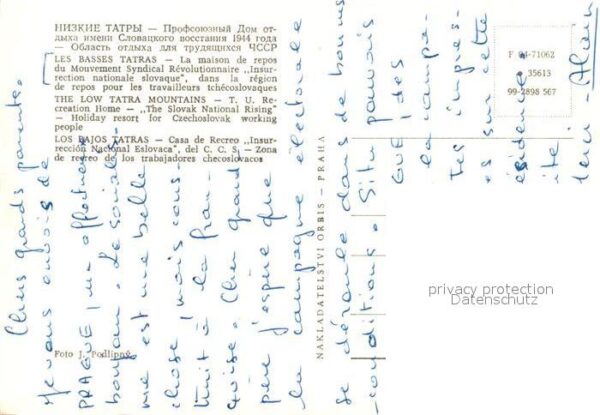 НИЗКИЕ ТАТРЫ — Профсоюзный Дом от-
дыха имени Словацкого восстания 1944 года
— Область отдыха для трудящихся ЧССР
LES BASSES TATRAS — La maison de repos
du Mouvement Syndical Révolutionnaire „Insur-
rection nationale slovaque", dans la région
de repos pour les travailleurs tchécoslovaques
THE LOW TATRA MOUNTAINS — T. U. Re-
creation Home — „The Slovak National Rising"
— Holiday resort for Czechoslovak working
people
LOS BAJOS TATRAS — Casa de Recreo „Insur-
rección Nacional Eslovaca", del C. C. S. — Zona
de recreo de los trabajadores checoslovacos
Foto J. Podlipný
NAKLADATELSTVÍ ORBIS – PRAHA
F 04-71062
35613
99-2898 567
Chers grands parents.
Je vous envois de
PRAGUE, un affectueux
bonjour. Le socialis-
me est une belle
chose, mais cons-
truit à la fran-
çaise. Cher grand
père j'espère que
la campagne électorale
se déroule dans de bonnes
conditions. Si tu pouvais
des
la campa-
tes impres-
es sur cette
Alain
privacy protection
Datenschutz